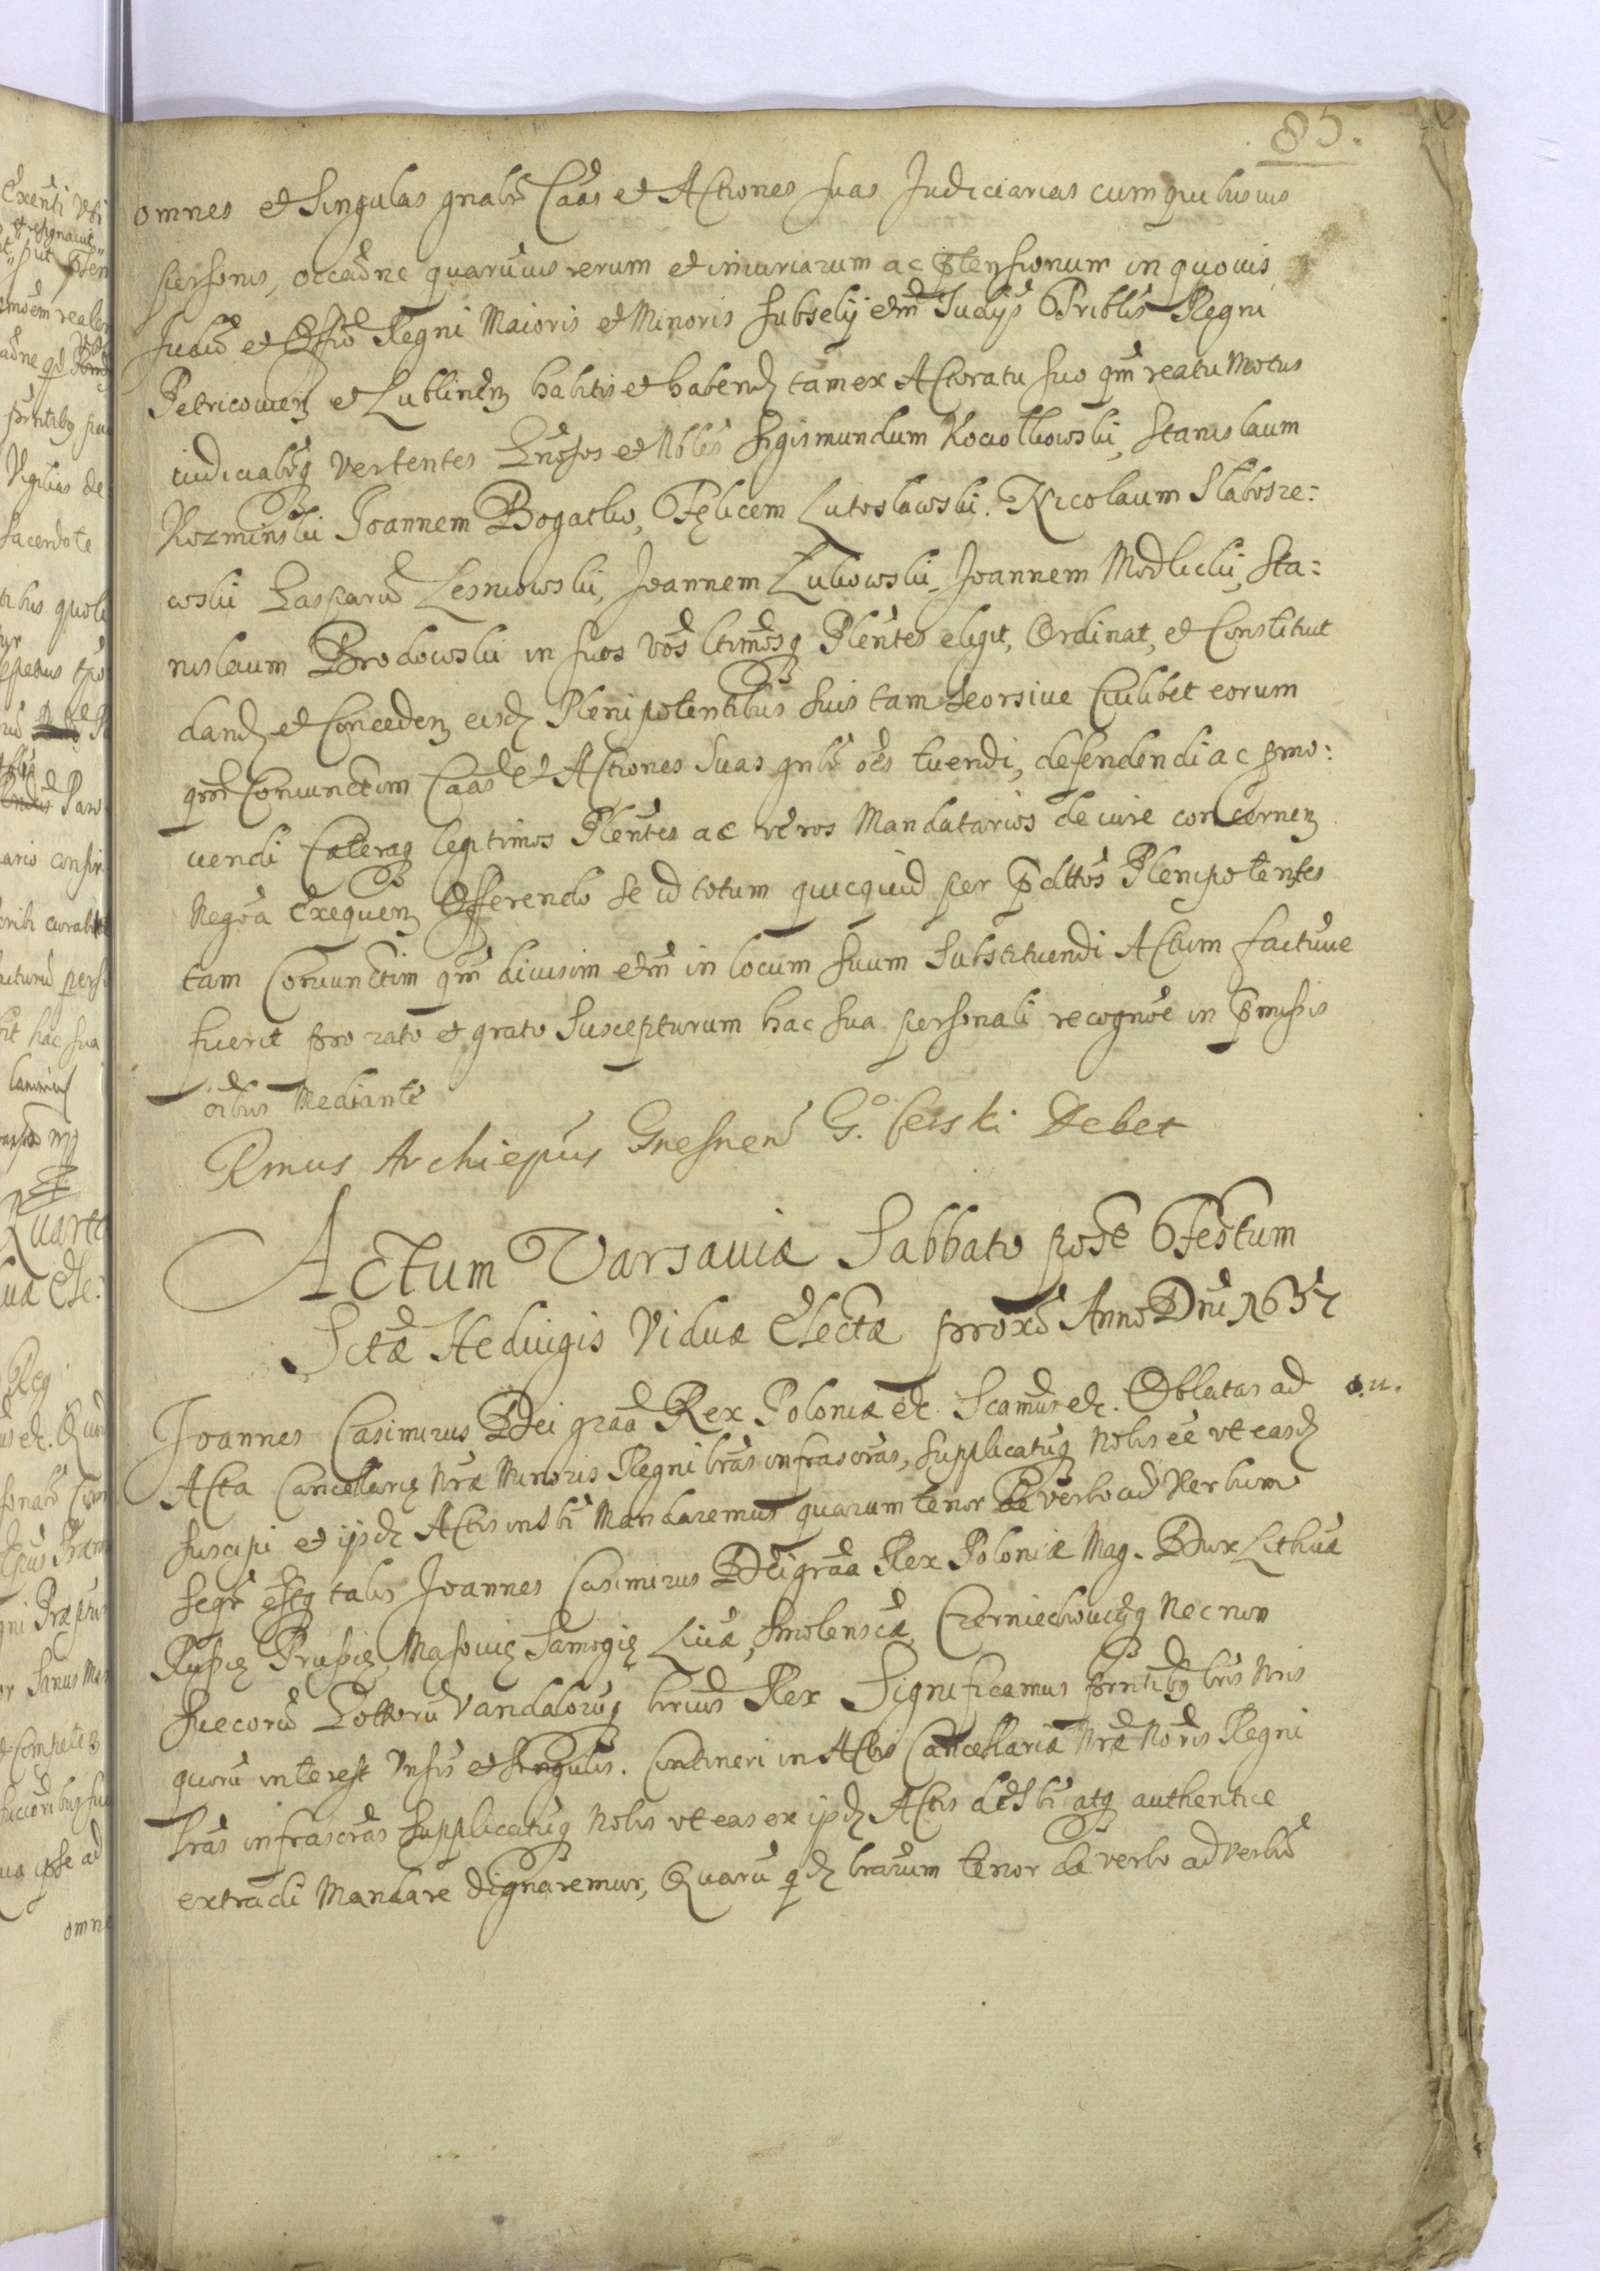 85.
omnes et Singulas gnalr Caas et Actiones suas Judiciarias cum quibusuis
personis, occaõne quarumuis rerum et iniuriarum ac ptensionum in quouis
Judio et Offio Regni Maioris et Minoris Subselij etm Judijs Triblis Regni
Petricouien et Lublinen habitis et habend tam ex Actoratu suo qm reatu Motus
iudiciabq vertentes Gnosos et Nbles Sigismundum Kociolkowski, Stanislaum
Kozminski Joannem Bogatko, Felicem Lutoslawski. Nicolaum Slabosze:
wski Gasparu Lesniowski, Joannem Lukowski, Joannem Modlicki, Sta:
nislaum Brodowski in suos vos ltimosq Plentes eligit, Ordinat, et Constituit
dand et Conceden eisd Plenipotentibus suis tam seorsiue Cuilibet eorum
qm Coniunctim Caas et Actiones Suas gnlr oes tuendi, defendendi ac pmo:
uendi Caeteraq legitimos Plentes ac veros Mandatarios de iure concernen
Negoa Exequen Offerendo se id totum quicquid per pdttos Plenipotentes
tam Coniunctim qm diuisim etm in locum suum Substituendi Actum factumue
fuerit pro rato et grato Suscepturum hac sua personali recognoe in pmissis
oibus Mediante
Rmus Archiepus Gnesnen G. Cerski Debet
Actum Varsauiæ Sabbato post Festum
Sctæ Heduigis Viduæ Electæ proxo Anno Dni 1657
Joannes Casimirus Dei graa Rex Poloniæ etc. Scamus etc. Oblatas ad
Acta Cancellariæ Nræ Minoris Regni lras infrascras, Supplicatuq Nobis ee vt easd
suscipi et ipsd Actis inSbi Mandaremus quarum tenor de verbo ad Verbum
seqr estq talis Joannes Casimirus Dei graa Rex Poloniæ Mag. Dux Lithuæ
Russiæ Prussiæ, Masouiæ Samogiæ Liuæ, Smolenscæ, Czerniechouiæq Nec non
Suecoru Gottoru Vandaloruq hrius Rex Significamus pntibq lris Nris
quoru interest Vnsis et Singulis. Contineri in Actis Cancellariæ Nræ Noris Regni
lras infrascras Supplicatuq Nobis vt eas ex ipsd Actis deSbi atq authentice
extradi Mandare dignaremur, Quaru qd lrarum tenor de verbo ad verbu